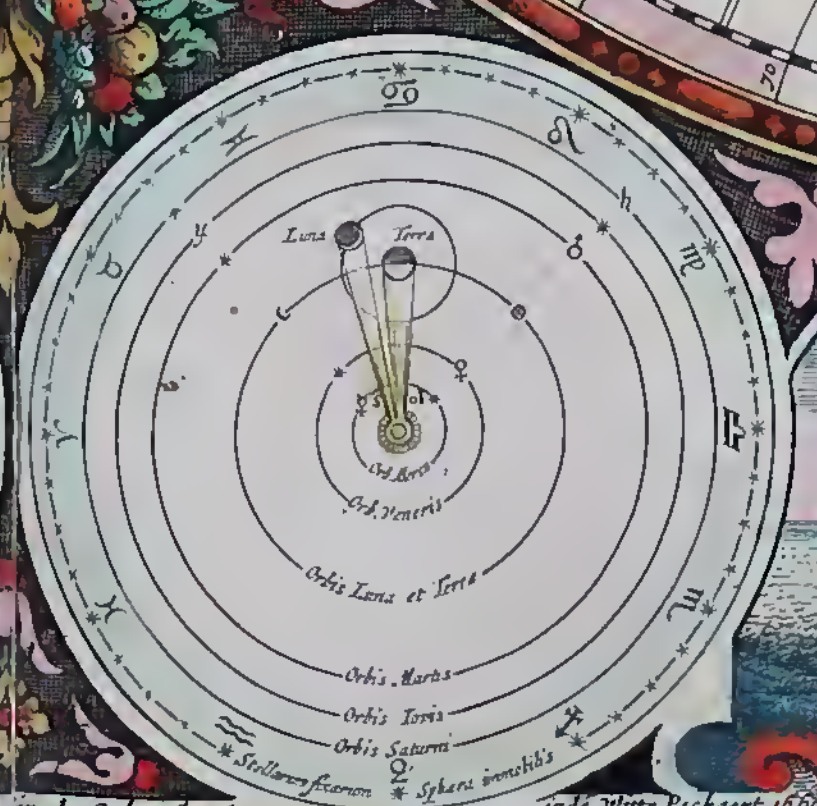 70
Luna
Terra
Sol
Orb. Merc.
Orb. Veneris
Orbis Luna et Terra
Orbis Martis
Orbis Iovis
Orbis Saturni
Stellarum fixarum Sphæra immobilis